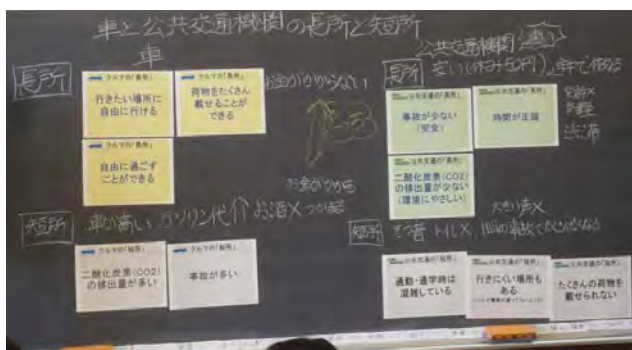 車と公共交通機関の長所と短所
車
長所
クルマの「長所」
行きたい場所に
自由に行ける
クルマの「長所」
荷物をたくさん
載せることが
できる
お金がかからない
クルマの「長所」
自由に過ごす
ことができる
お金がかかる
短所
車が高い ガソリン代 お酒×
クルマの「短所」
二酸化炭素(CO2)
の排出量が多い
クルマの「短所」
事故が多い
公共交通機関
長所
安い
公共交通の「長所」
事故が少ない
(安全)
公共交通の「長所」
時間が正確
渋滞
公共交通の「長所」
二酸化炭素(CO2)
の排出量が少ない
(環境にやさしい)
大きい声×
短所
公共交通の「短所」
通勤・通学時は
混雑している
公共交通の「短所」
行きにくい場所も
ある
公共交通の「短所」
たくさんの荷物を
載せられない